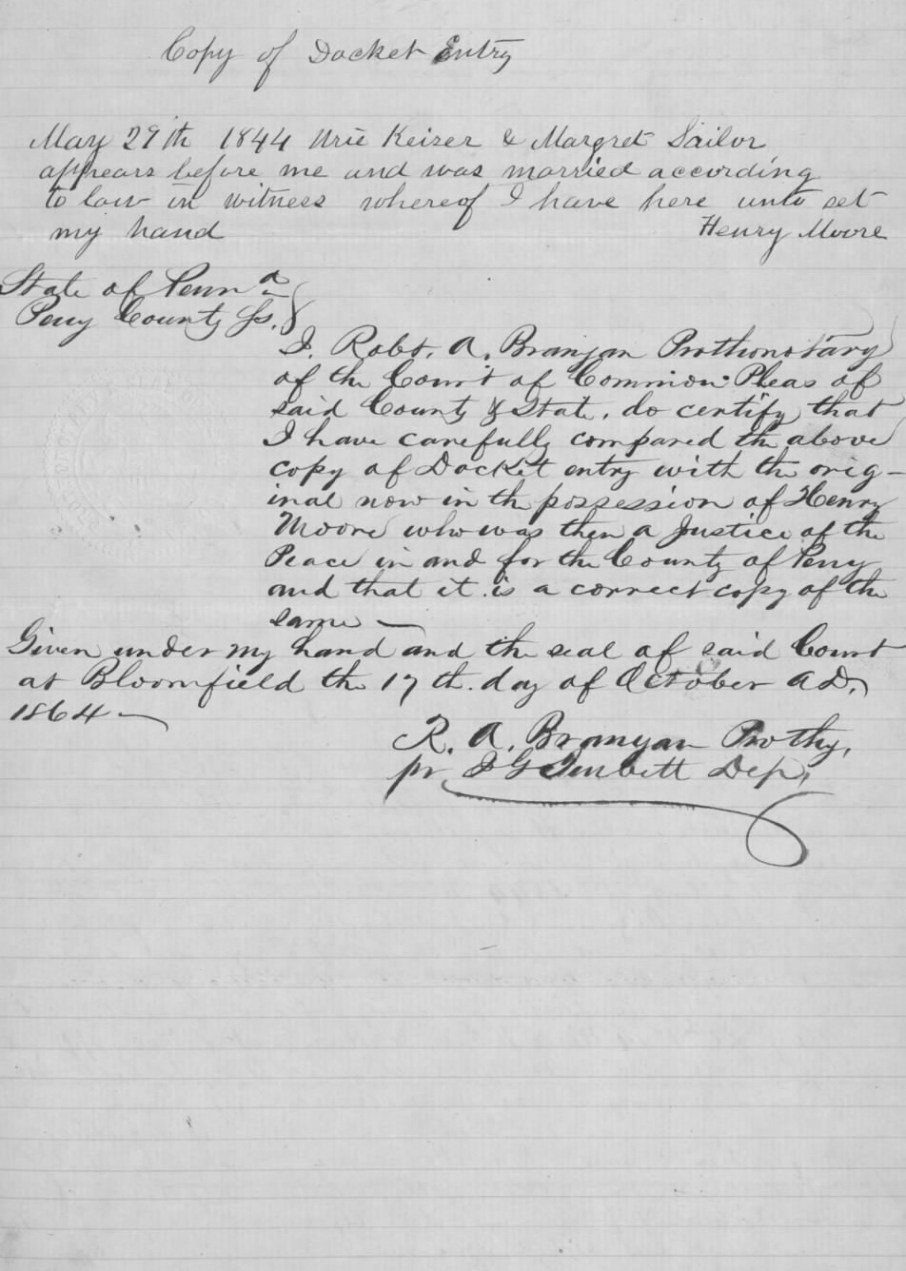 Copy of Docket Entry
May 29th 1844 Urie Keizer & Margret Sailor
appears before me and was married according
to law in witness whereof I have here unto set
my hand Henry Moore
State of Penna
Perry County Ss.
I. Robt. A. Branyan Prothonotary
of the Court of Common Pleas of
said County & State, do certify that
I have carefully compared the above
copy of Docket entry with the orig-
inal now in th possession of Henry
Moore who was then a Justice of the
Peace in and for the County of Perry
and that it is a correct copy of the
same —
Given under my hand and the seal of said Court
at Bloomfield the 17th. day of October A.D.
1864 —
R. A. Branyan Prothy,
pr. Dep,